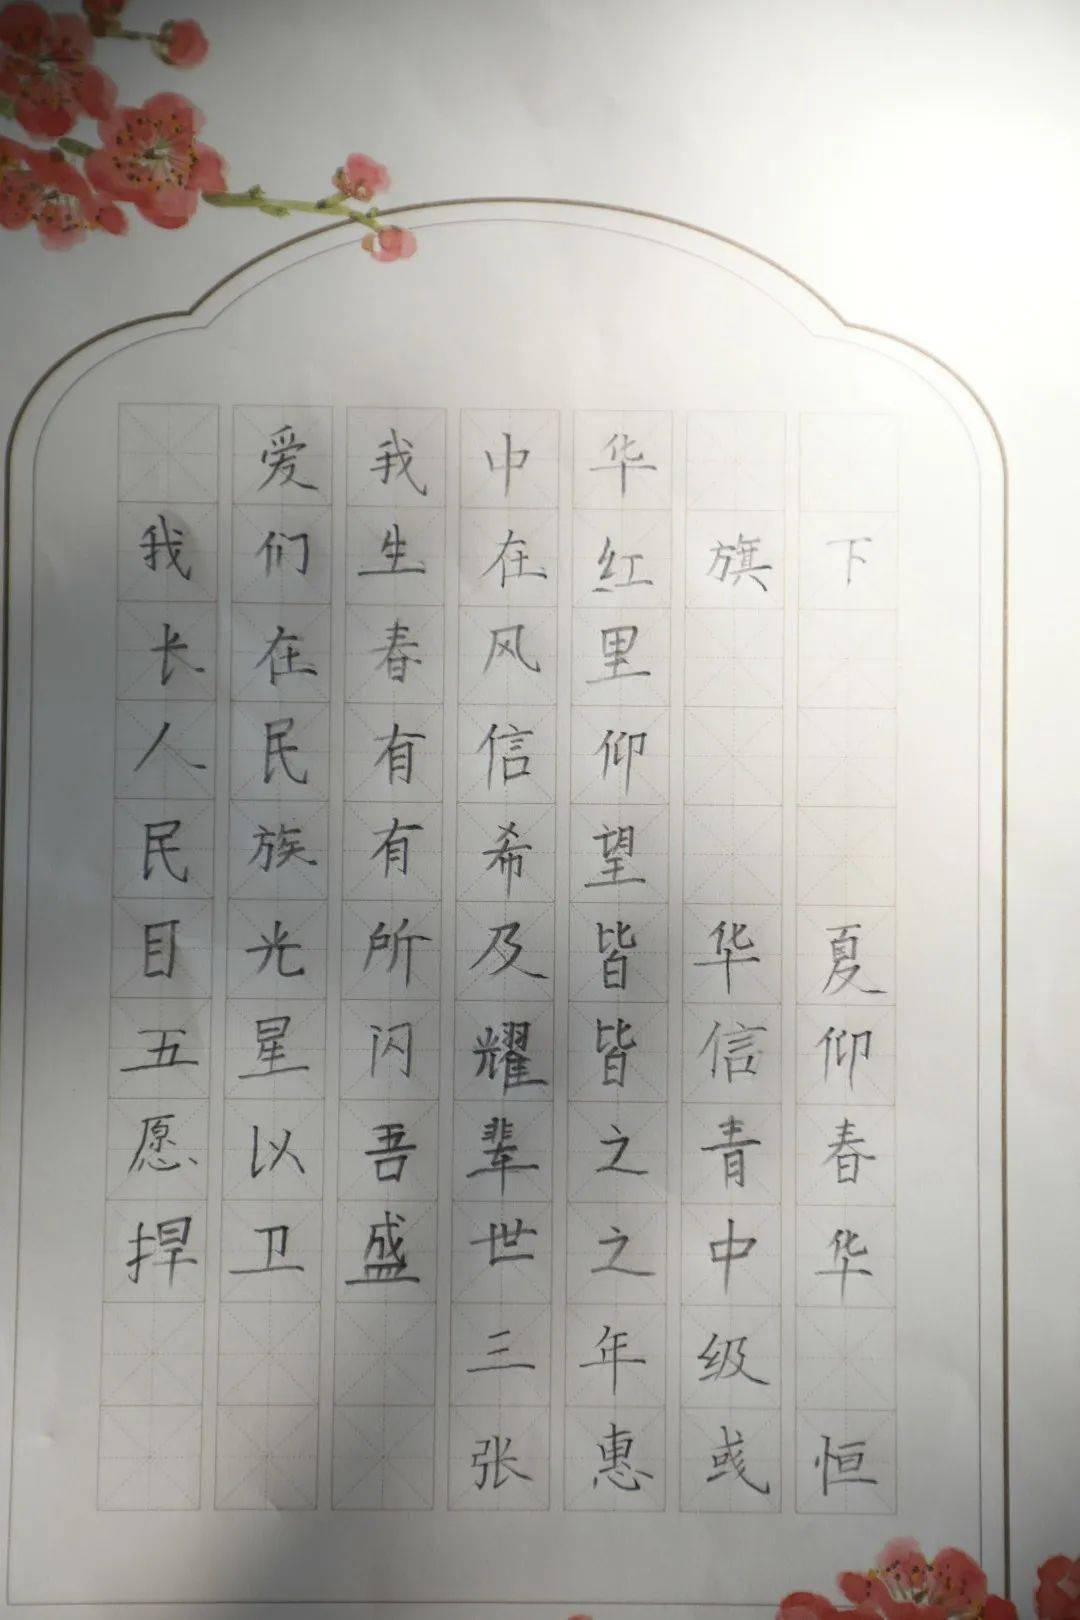 爱我中华
我们生在红旗下
长在春风里
人民有信仰
民族有希望
目光所及皆华夏
五星闪耀皆信仰
愿以吾辈之青春
捍卫盛世之中华
三年级
张惠彧恒